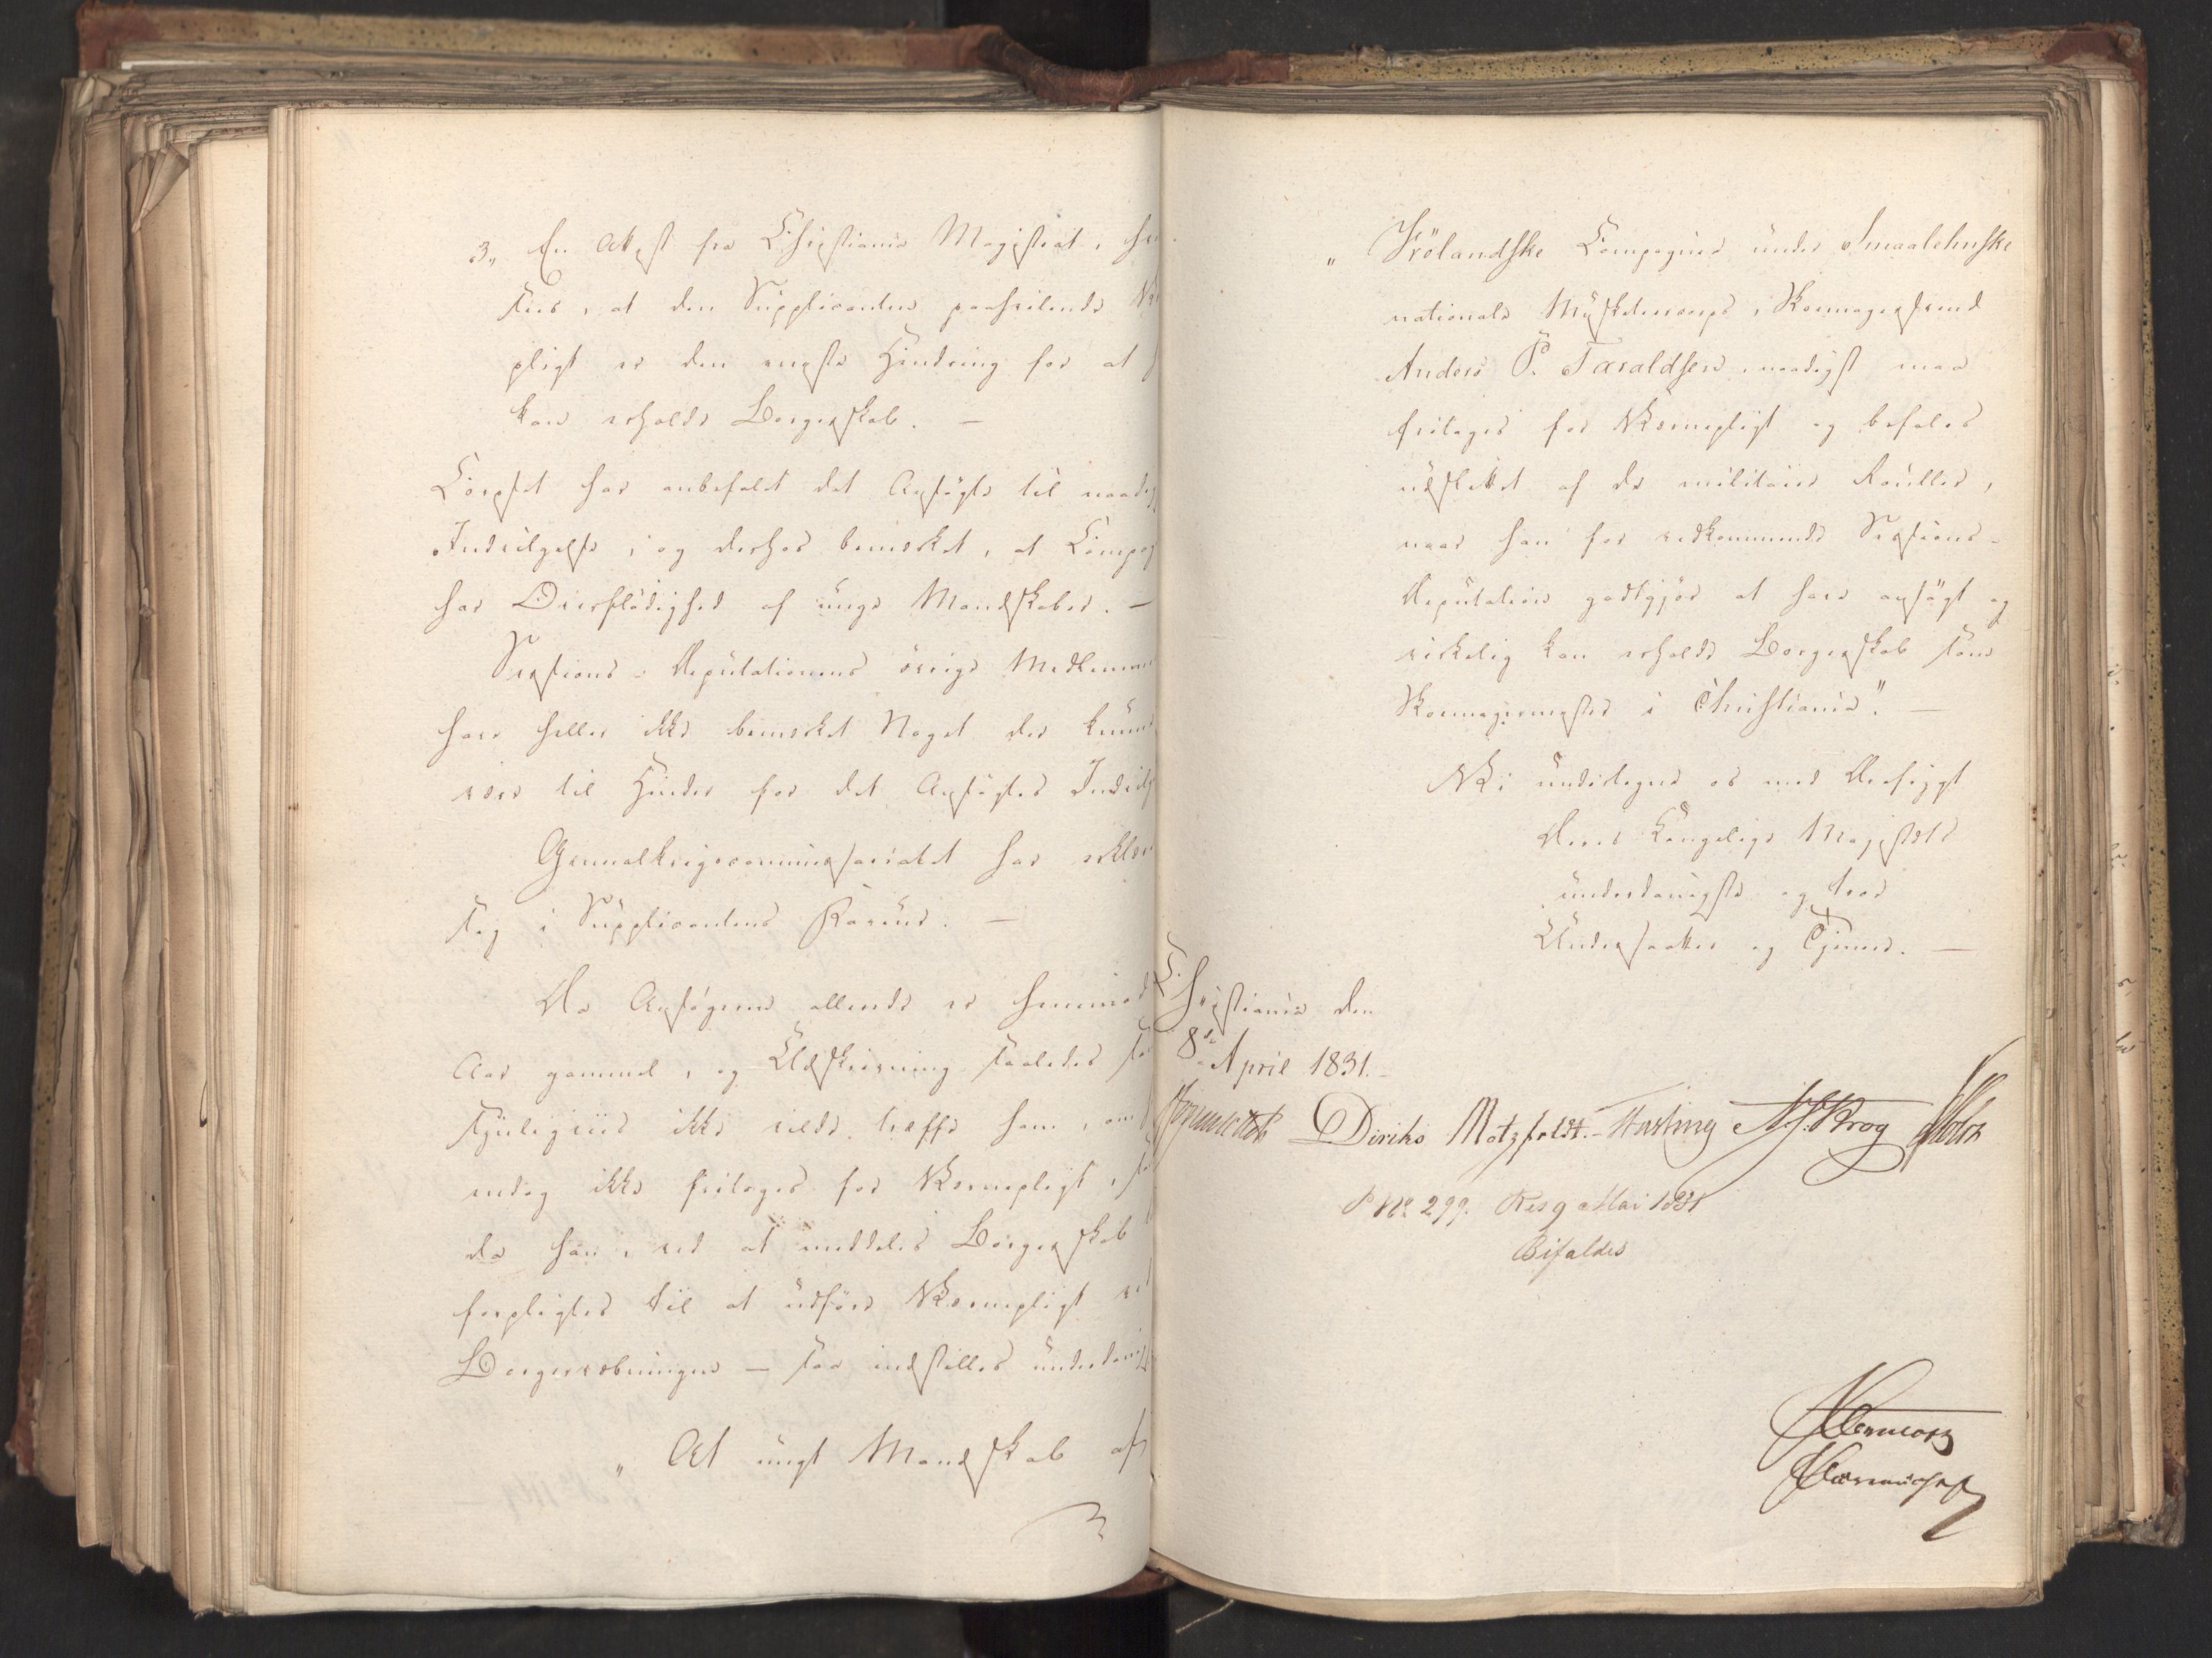 3,, En Attest fra Christiania Magistrat, hvo
sees, at den Supplicanten paahvilende Væ
pligt er den eneste Hindring for at h
kan erholde Borgerskab. —
Corpset har anbefalet det Ansøgte til naadig
Indvilgelse, og derhos bemærket, at Compag
har Overflødighed af unge Mandskaber. —
Sessions-Deputationens øvrige Medlemmer
have heller ikke bemærket Noget der kunde
være til Hinder for det Ansøgtes Indvilg
Generalkrigscommissariatet har erklær
sig i Supplicantens Faveur. —
Da Ansøgeren allerede er
Aar gammel, og Udskrivning saaledes
ikke vilde træffe ham, om
endog ikke fritages for Værnepligt,
da han, ved at meddeles Borgerskab
forpligtes til at udføre Værnepligt ve
Borgervæbningen — saa indstilles underdanigst
„ At ungt Mandskab af
„ Frölandske Compagnie under Smaalehnske
nationale Musketeercorps, Skomagersvend
Anders P. Taraldsen, naadigst maa
fritages for Værnepligt og befales
udslettet af de militaire Rouller,
naar han for vedkommende Sessions-
Deputation godtgjör at have ansögt og
virkelig kan erholde Borgerskab som
Skomagermester i Christiania". —
Vi undertegne os med Devotion
Deres Kongelige Majestæts
underdanigste og troe
Undersaatter og Tjenere. —
Christiania den
8de April 1831.
Diriks Motzfeldt. Krog Holst
P No 299. Res 9 Mai 1831
Bifaldes